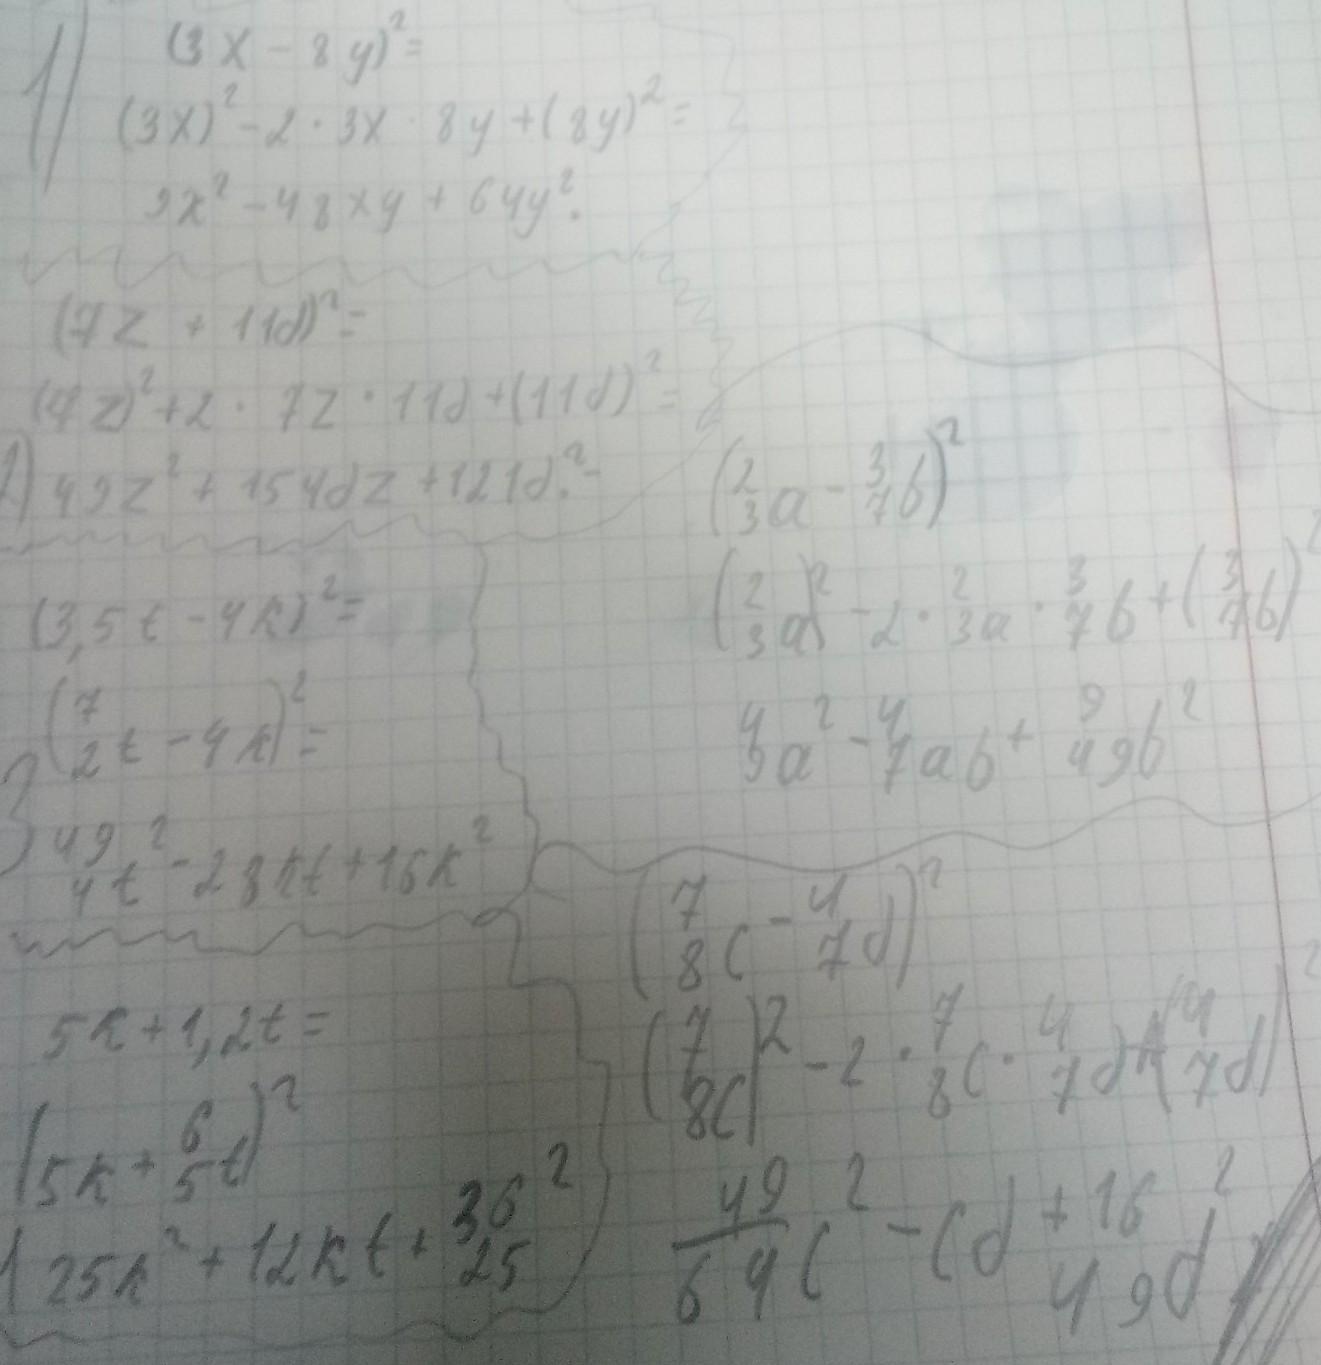 1) (3x - 8y)²=
(3x)² - 2 · 3x · 8y + (8y)² =
9x² - 48xy + 64y².
(7z + 11d)²=
(7z)² + 2 · 7z · 11d + (11d)² =
2) 49z² + 154dz + 121d².
(3,5t - 4k)² =
(7/2t - 4k)² =
3) 49/4t² - 28kt + 16k²
5k + 1,2t =
(5k + 6/5t)²
25k² + 12kt + 36/25²
(2/3a - 3/7b)²
(2/3a)² - 2 · 2/3a · 3/7b + (3/7b)²
4/9a² - 4/7ab + 9/49b²
(7/8c - 4/7d)²
(7/8c)² - 2 · 7/8c · 4/7d + (4/7d)²
49/64c² - cd + 16/49d²